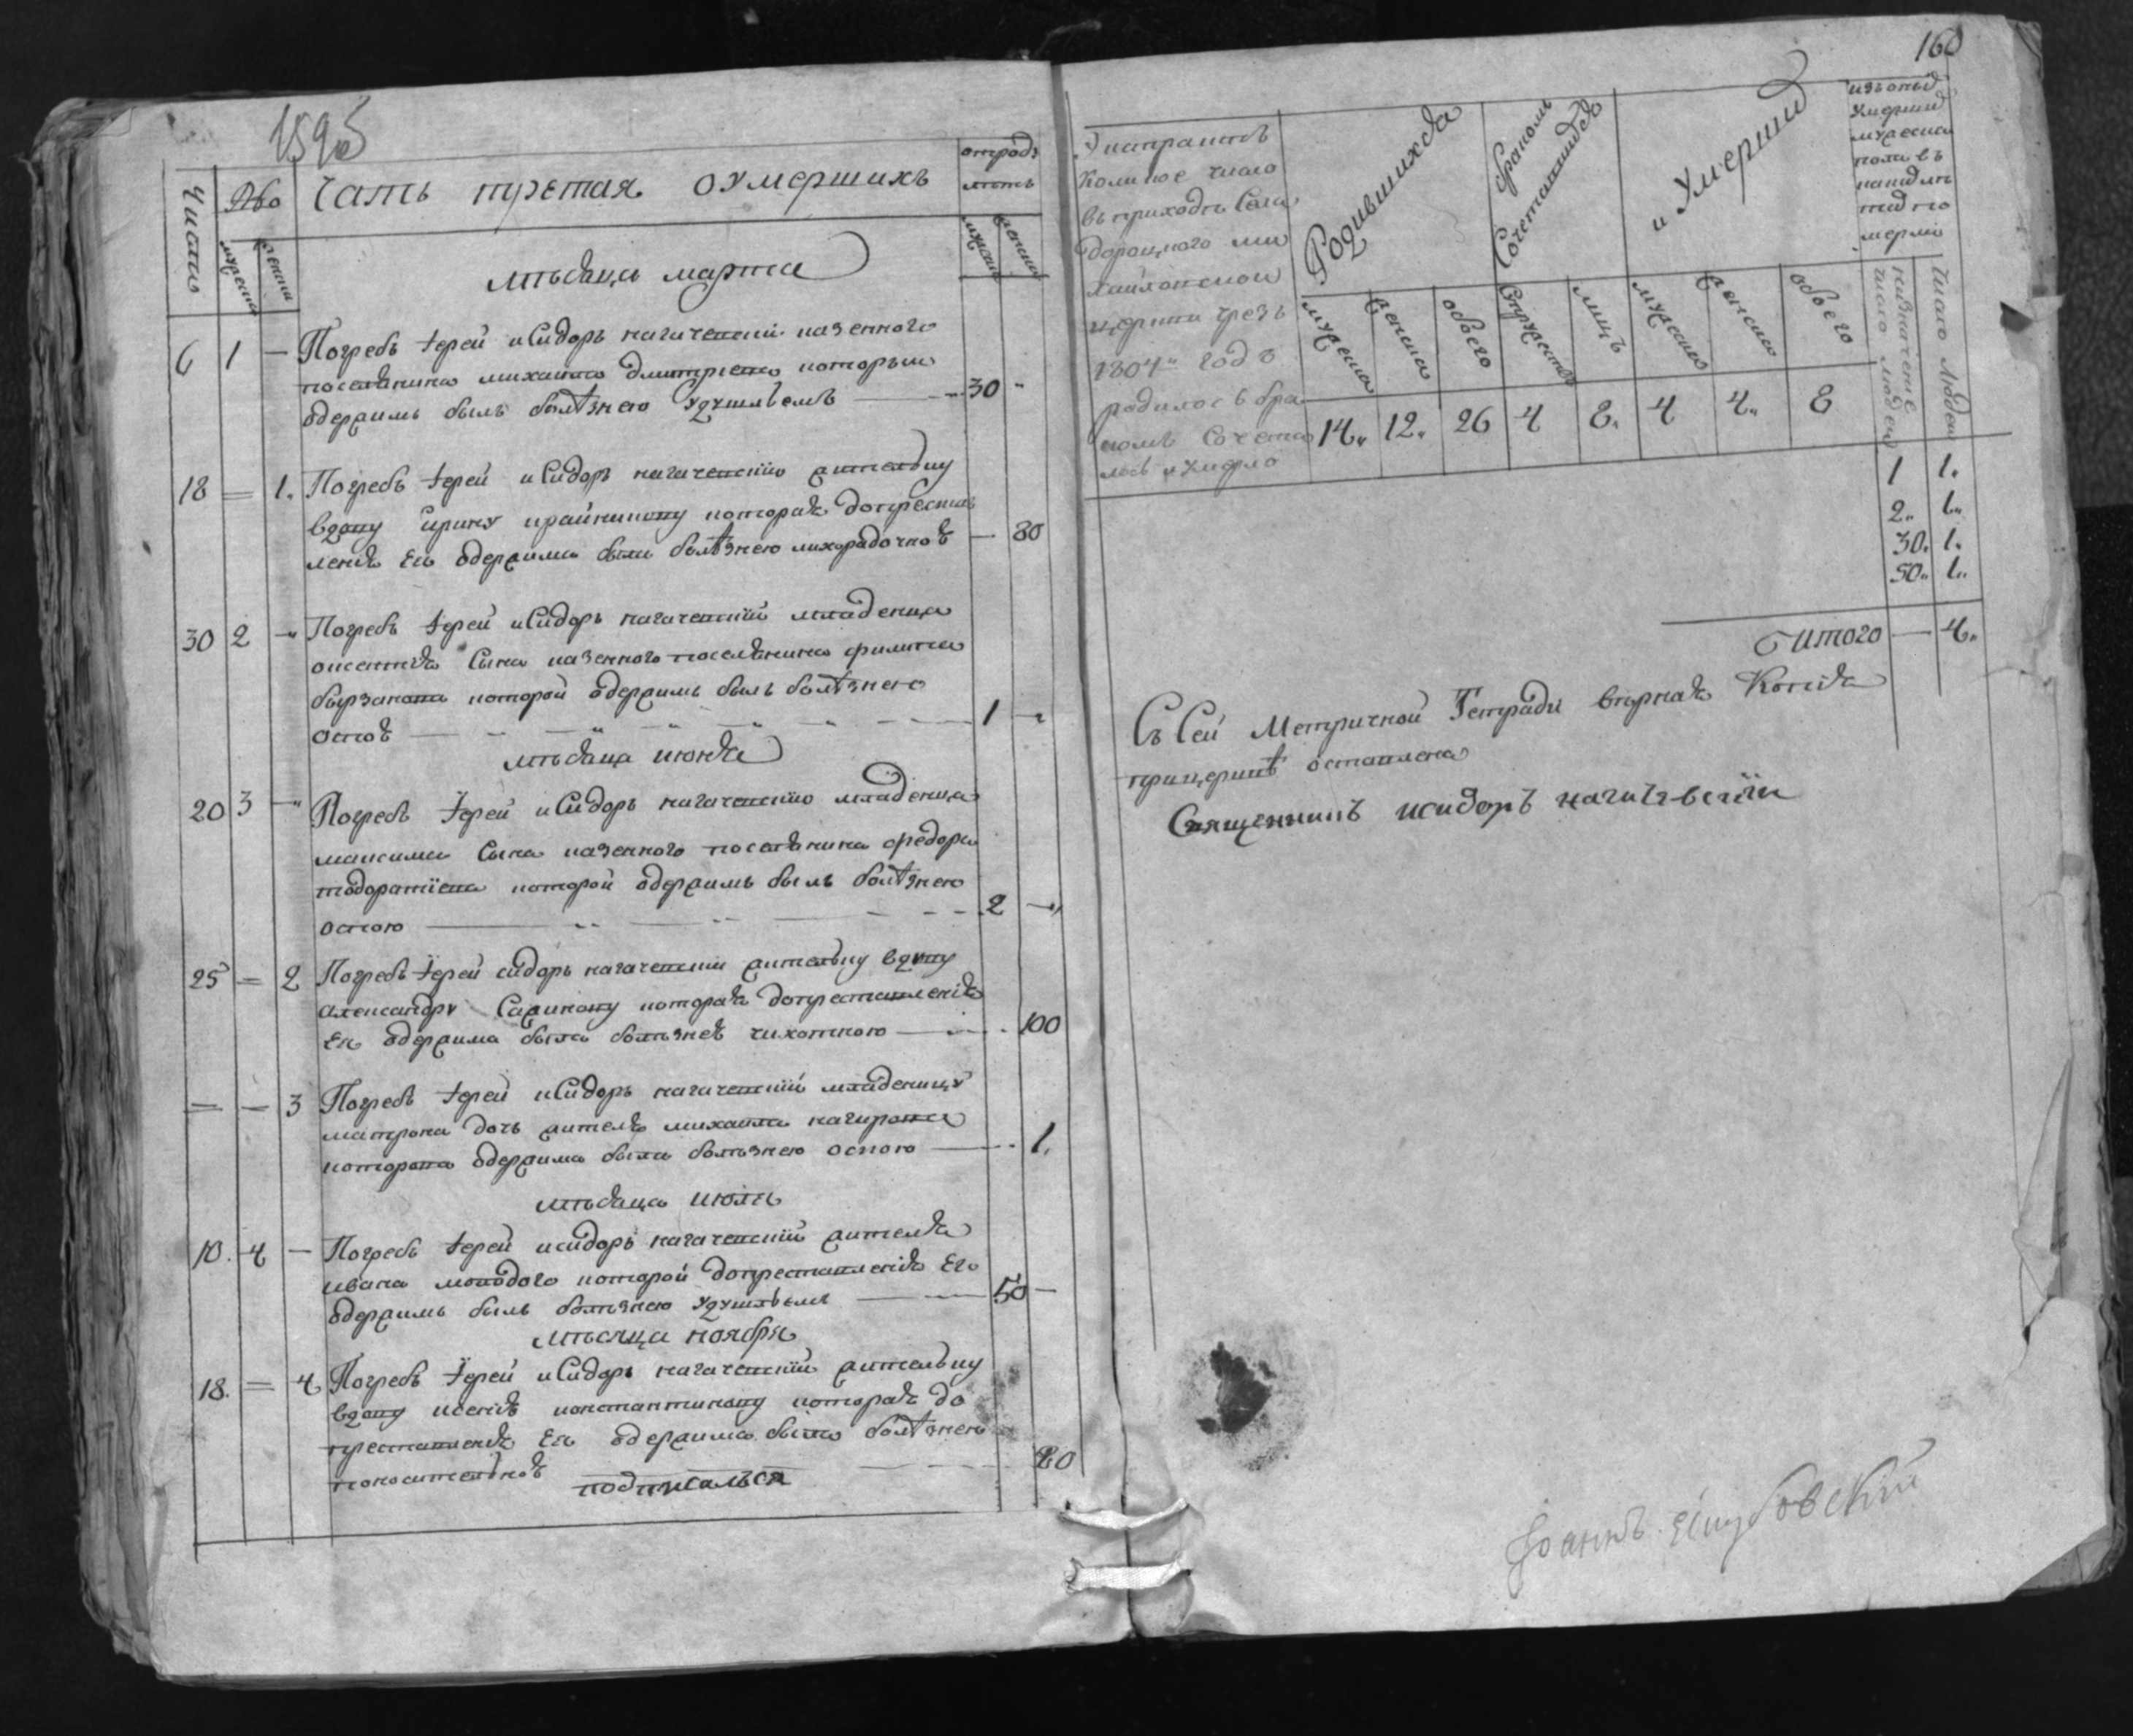 1595
Число
Лѣо
мужеска
женска
Часть третая о умершихъ
отродъ
лѣтъ
мужеска
женска
мѣсяца марта
6 1 — Погребъ іерей исидоръ нагачевскій казенного
поселянина михаила дмитріева которым
одержимъ былъ болѣзнею удушьемъ — 30 "
18 = 1. Погребъ іерей исидоръ нагачевскій жителку
вдову ирину крайникову которая допреставленія
Ея одержима была болѣзнею лихорадочною — 80
30 2 — Погребъ іерей исидоръ нагачевскій младенца
сына казенного поселянина филипа
которой одержимъ былъ болѣзнею
оспою — 1 —
мѣсяца июня
20 3 — Погребъ іерей исидоръ нагачевскій младенца
максима сына казенного поселянина федора
которой одержимъ былъ болѣзнею
оспою — 2 —
25 = 2 Погребъ іерей сидоръ нагачевскій жителку вдову
александру которая допреставленія
Ея одержима была болѣзнею чихотною — 100
= — 3 Погребъ іерей исидоръ нагачевскій младеницу
матрона дочь жителя михаила
которая одержима была болѣзнею оспою — 1.
мѣсяца июля
10. 4 — Погребъ іерей исидоръ нагачевскій жителя
ивана молодого которой допреставленія Его
одержимъ былъ болѣзнею удушьемъ — 50 —
мѣсяца ноября
18. = 4 Погребъ іерей исидоръ нагачевскій жителку
вдову ксенію константинову которая до
преставленія Ея одержима была болѣзнею
поносителною — 80
подписалься
160
коликое число
въ приходѣ села
михайловской
церкви чрезъ
1804" годъ
родилось бра
комъ сочета
лось и умерло
Родившихся
бракомъ
Сочетавшихся
и Умерших
изъ оных
умерших
мужеска
пола въ
умерло
мужеска
женска
обоего
супружество
лицъ
мужеска
женска
обоего
число людей
14" 12" 26 4 8. 4 4" 8
1 1.
2" 1"
30. 1.
50" 1"
Итого — 4"
Съ Сей Метричной Тетради вѣрная Копія
прицеркви оставлена
Священникъ исидоръ нагичевскій